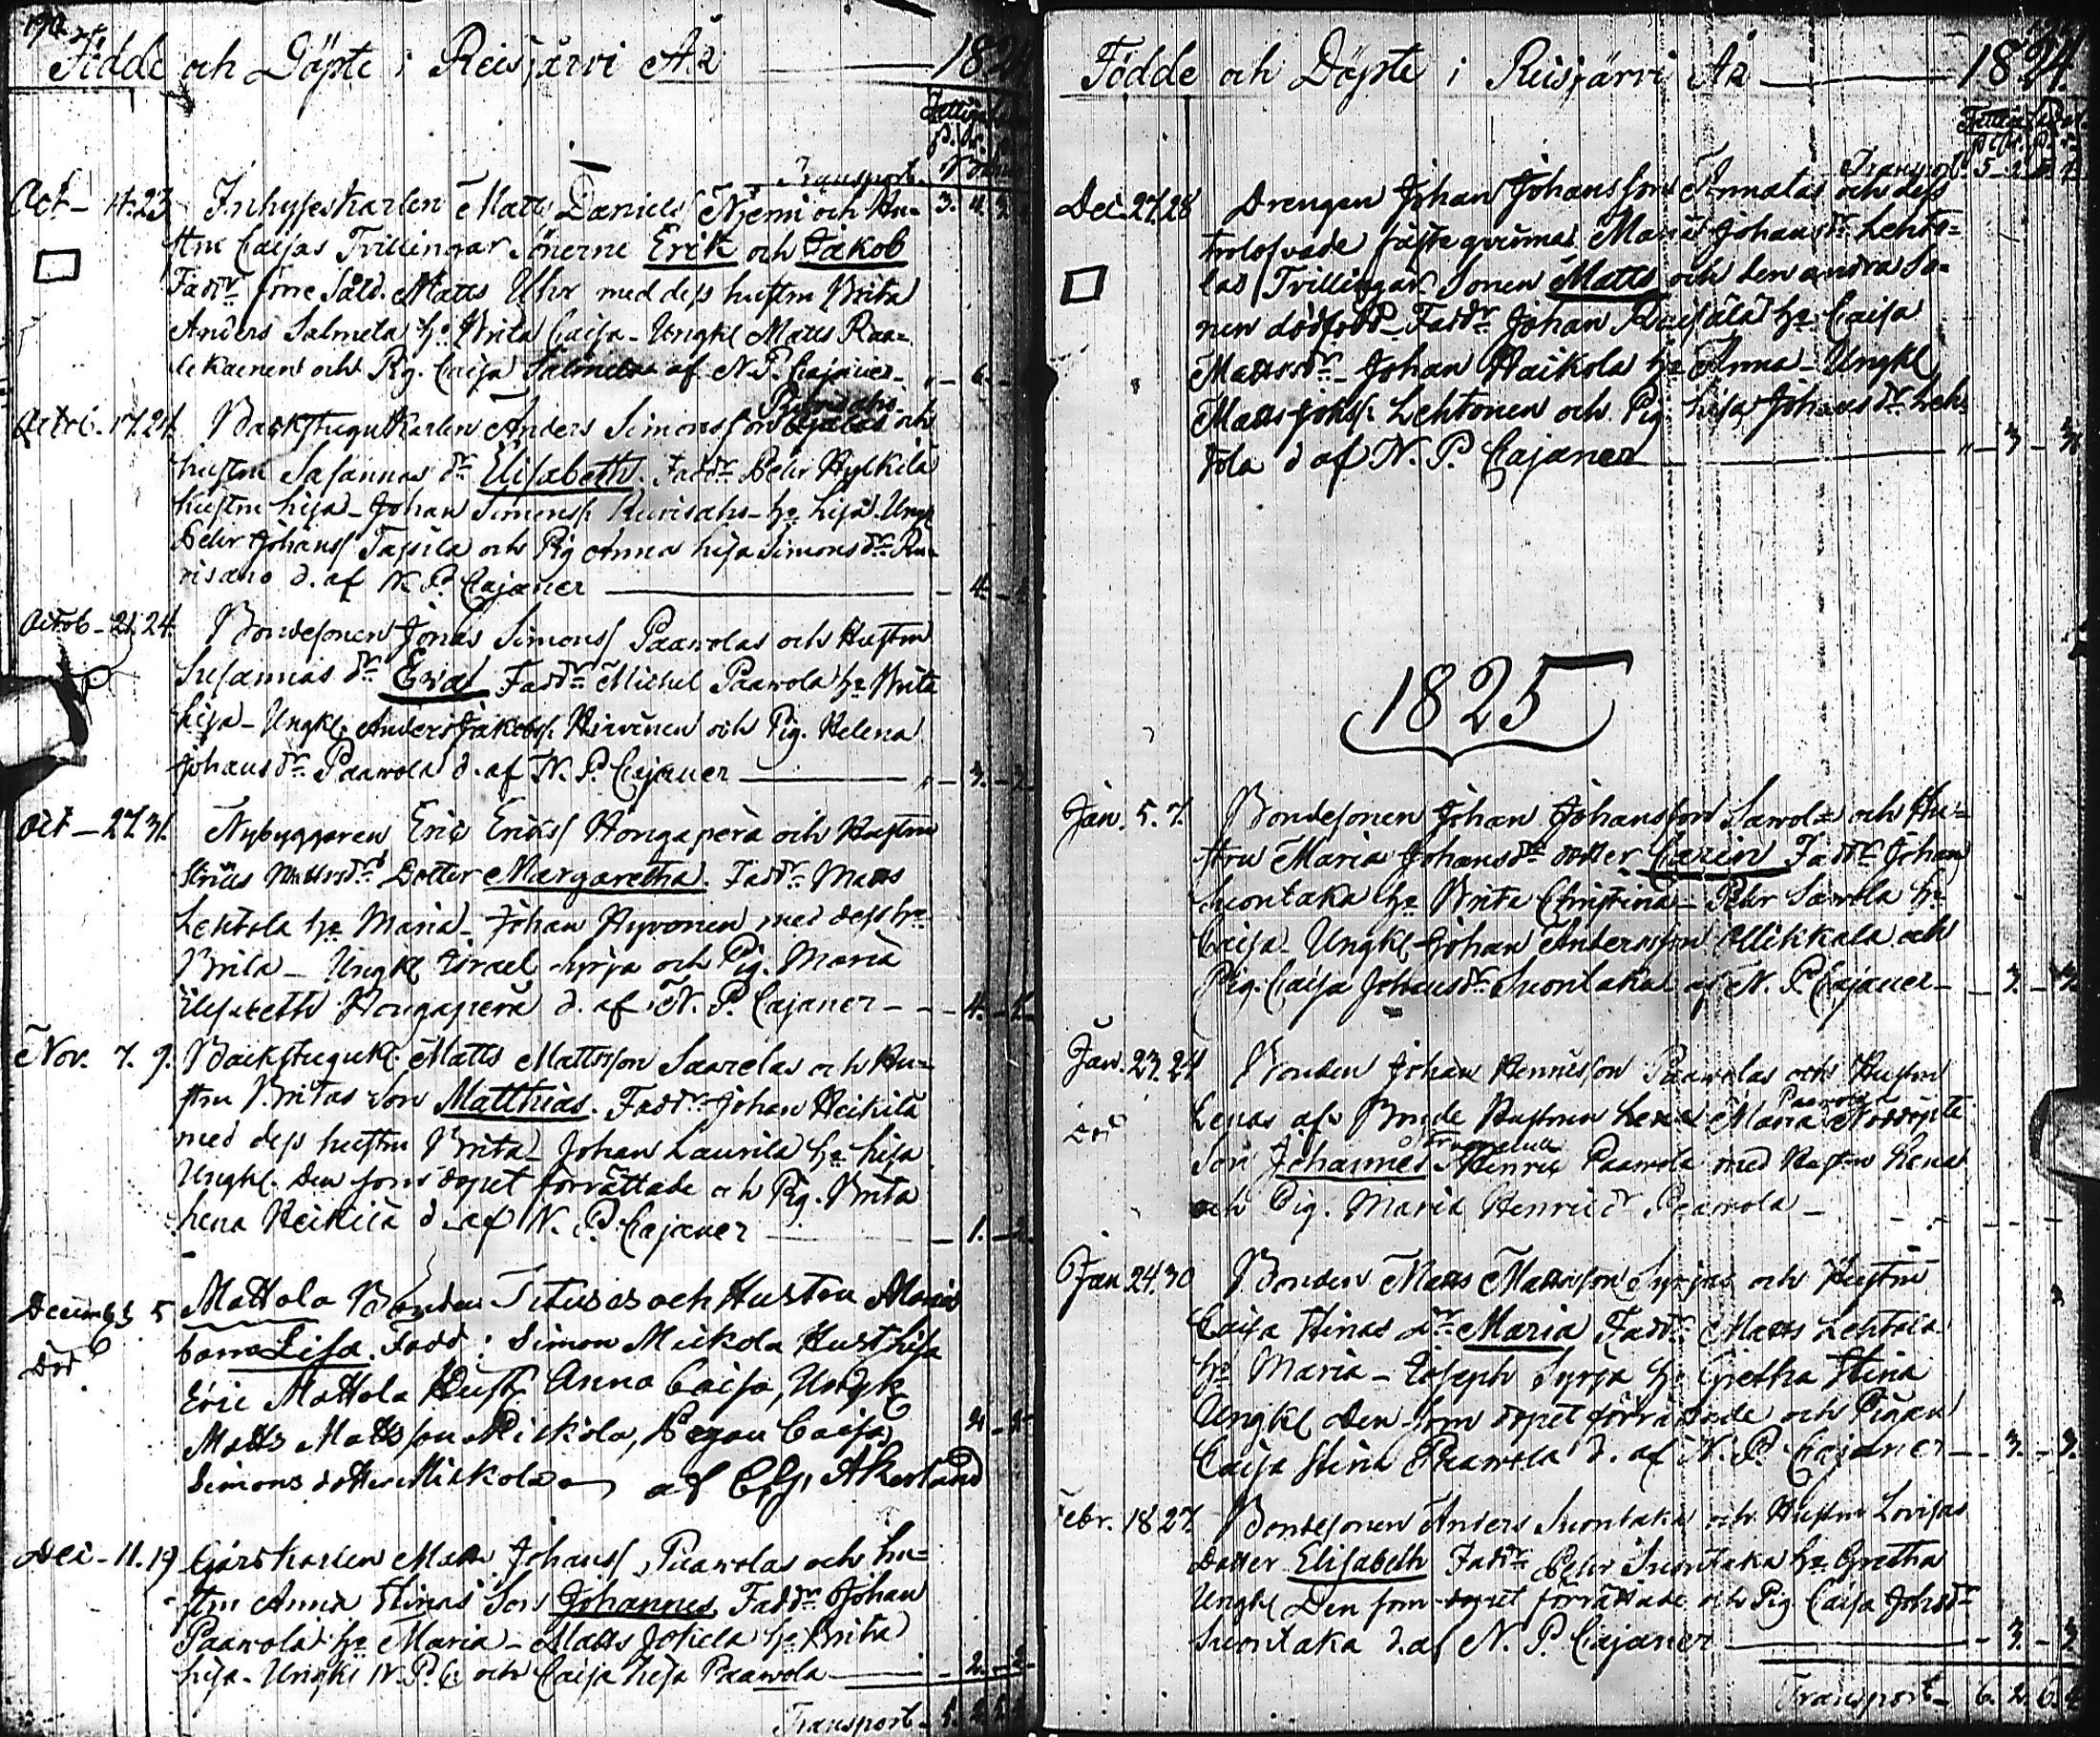 190
Födde och Döpte i Reisjärvi År 1824
Transport
Oct - 17.23 Inhyseskarlen Matts Daniels Niemi och Hu-
stru Caisas Tvillingar Sönerne Erik och Jakob
Fadd: förre Sold. Matts Uhr med dess hustru Brita
Anders Salmela h: Brita Caisa - Ungkl Matts Raa-
tikainen och Pig. Caisa Salmela af N. P. Cajaner
Octob. 17.24 Backstugukarlen Anders Simonsson och
hustru Susannas dr Elisabeth. Faddr Pehr Hylkilä
hustru Lisa - Johan Simons Kurisaho - h: Lisa. Ungk
Pehr Johans Tassila och Pig Anna Lisa Simonsdr Ku-
risaho d. af N. P. Cajaner - 4 -
Octob - 21.24 Bondesonen Jonas Simons Paavolas och Hustru
Susannas dr Eva Faddr Michel Paavola h: Brita
Lisa - Ungkl. Anders Jakobs. Hirvinen och Pig. Helena
Johansdr Paavola d. af N. P. Cajaner - 3. -
Oct - 27.31 Nybyggaren Eric Eriks Hongaperä och Hustru
Mattsdr Dotter Margaretha. Faddr Matts
Lehtola h: Maria - Johan Hyvonen med dess h:
Brita - Ungkl Israel Syrja och Pig. Maria
Elisabeth Hongapera d. af N. P. Cajaner - 4. -
Nov. 7. 9. Backstugukl. Matts Mattsson Saarelas och Hu-
stru Britas Son Matthias. Faddr Johan Heikilä
med dess hustru Brita - Johan Laurila h: Lisa
Ungkl. Den som dopet förrättade och Pig. Brita
Lena Heikilä d. af N. P. Cajaner - 1. - 2
Decemb 5 Mattola Bonden Tituses och Hustru Marias
barn Lisa. Fadd: Simon Mickola Hust Lisa
Död
Eric Mattola Hust. Anna Caisa, Ungk
Matts Mattsson Mickola, Pegan Caisa
Simons dotter Mickola af Åkerlund
Dec - 11.19 Gårdskarlen Matts Johans Paavolas och hu-
stru Anna Stinas Son Johannes Faddr Johan
Paavola h: Maria - Matts Jokela h: Brita
Lisa - Ungkl N. P. C. och Caisa Lisa Paavola - 2. - 2
Transport - 5. 2. 5.
Födde och Döpte i Reisjärvi År 1824.
Transport 5 - 2. 5. 2.
Dec. 27.28 Drengen Johan Johanssons Annalas och dess
trolofvade fästeqvinnas Maria Johansdr Lehto-
las Tvillingar Sonen Matts och den andra So-
nen dödfödd - Faddr Johan Raisälä h: Caisa
Mattsdr - Johan Haikola h: Anna - Ungkl
Matts Johs. Lehtonen och Pig Lisa Johansdr Leh-
tola d af N. P. Cajaner - 3 - 3
1825
Jan. 5. 7. Bondesonen Johan Johansson Savola och Hu-
stru Maria Johansdr dotter Carin Faddr Johan
Suontaka h: Brita Christina - Pehr Savola h:
Caisa - Ungkl Johan Andersson Ollikkala och
Pig. Caisa Johansdr Suontaka af N. P. Cajaner - 3. - 3.
Jan. 23.24 Bonden Johan Henricsson Paavolas och Hustru
Lenas af Bonde Hustrun Lena Maria Paavola Nöddöpte
Död
Son Johannes Henric Paavola med Hustru Lena
och Pig. Maria Henricdr Paavola -
Jan 24.30 Bonden Matts Mattsson Syrjas och Hustru
Caisa Stinas dr Maria Faddr Matts Lehtola
h: Maria - Joseph Syrja h: Gretha Stina
Ungkl den som dopet förrättade och Pigan
Caisa Stina Paavola d. af N. P. Cajaner - 3. - 3.
Febr. 18 27. Bondesonen Anders Suontaka och Hustru Lovisas
Dotter Elisabeth Faddr Pehr Suontaka h: Gretha
Ungkl Den som dopet förrättade och Pig Caisa Johsdr
Suontaka d. af N. P. Cajaner - 3. - 3.
Transport - 6. 2. 6. 2